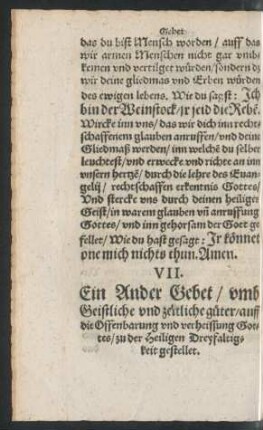 Gebet.
das du bist Mensch worden / auff das
wir armen Menschen nicht gar vmb⸗
kemen vnd vertilget würden / sondern dz
wir deine gliedmas vnd Erben würden
des ewigen lebens. Wie du sagst: Jch
bin der Weinstock / jr seid die Rebē.
Wircke inn vns / das wir dich inn recht⸗
schaffenem glauben anruffen / vnd deine
Gliedmaß werden / inn welchē du selber
leuchtest / vnd erwecke vnd richte an inn
vnsern hertzē / durch die lehre des Euan⸗
gelij / rechtschaffen erkentnis Gottes /
Vnd stercke vns durch deinen heiliger
Geist / in warem glauben vn̄ anruffung
Gottes / vnd inn gehorsam der Gott ge
fellet / Wie du hast gesagt: Jr könnet
one mich nichts thun. Amen.
VII.
Ein Ander Gebet / vmb
Geistliche vnd zeitliche güter / auff
die Offenbarung vnd verheissung Got⸗
tes / zu der Heiligen Dreyfaltig⸗
keit gestellet.